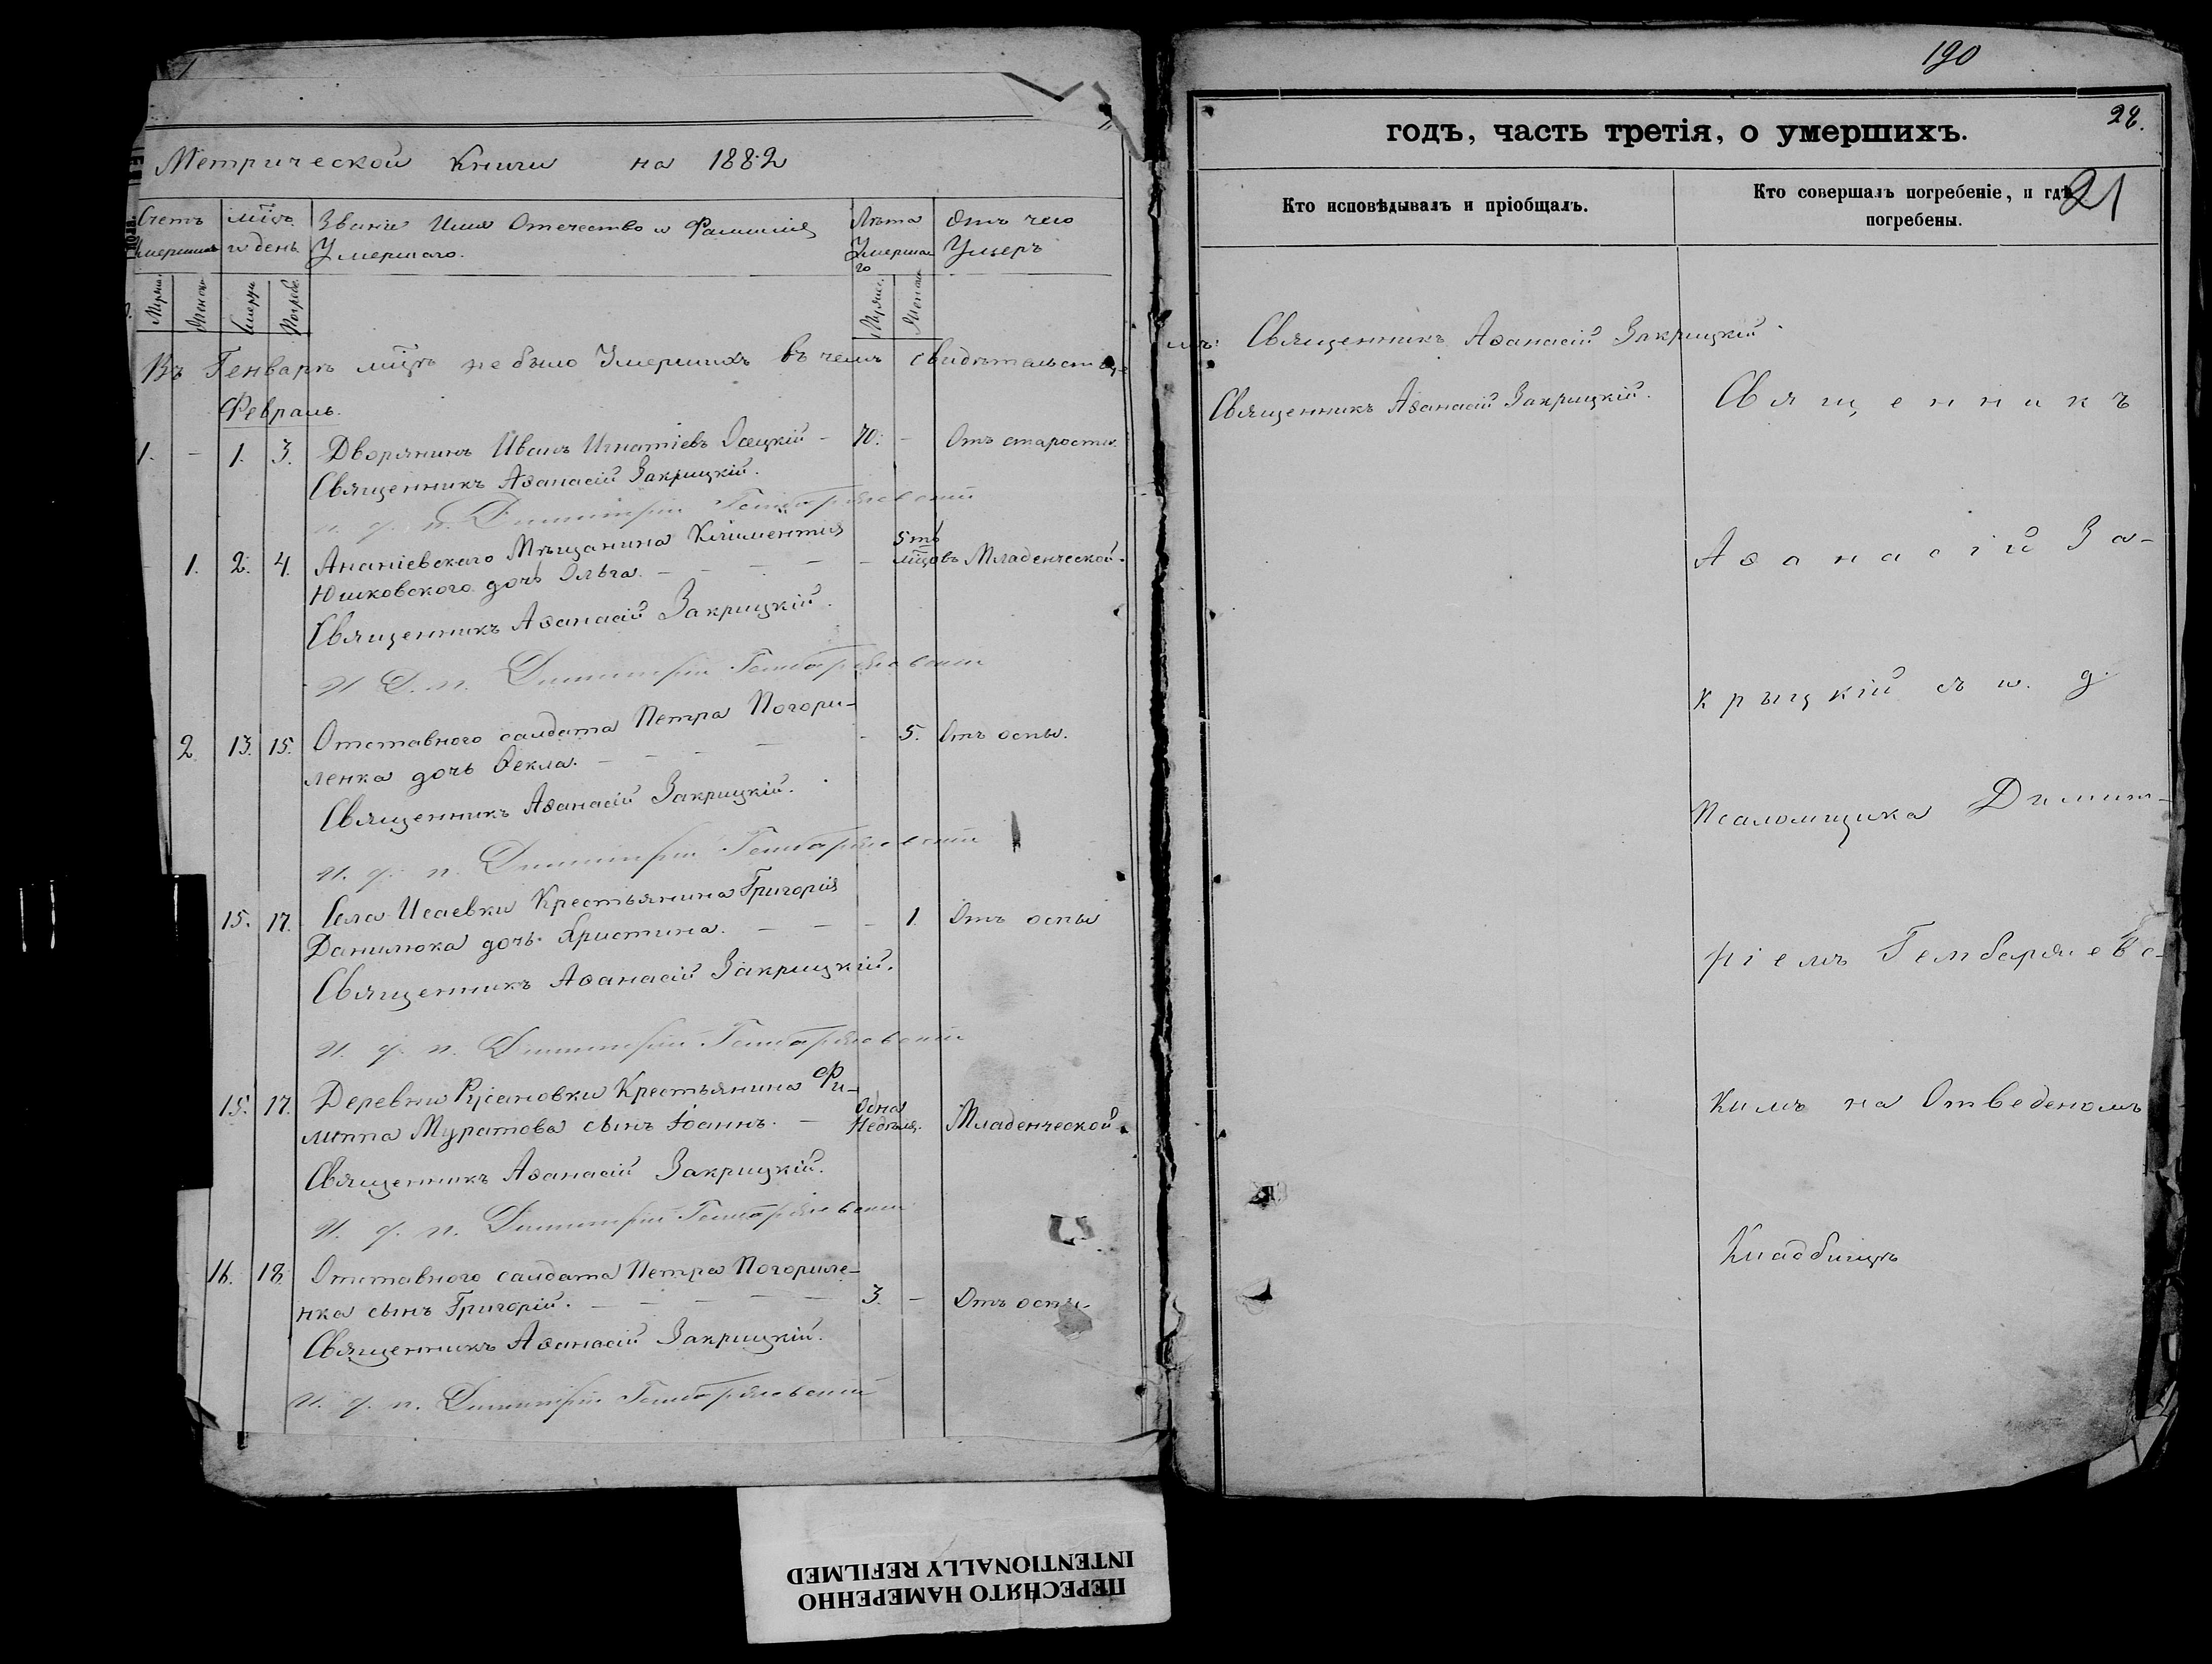 Метрической Книги на 1882
Счетъ Умершихъ
мѣсяцъ и день
Званіе Имя Отечество и Фамилія Умершаго.
Лѣта Умершаго
Отъ чего Умеръ
Въ Генварѣ мцѣ не было Умершихъ въ чемъ свидѣтельству-
Февраль.
1. - 1. 3. Дворянинъ Иванъ Игнатіевъ - 70. - Отъ старости.
Священникъ Аѳанасій Закрицкій.
и. д. п. Димитрій
1. 2. 4. Ананіевскаго Мѣщанина Климентія - 5ть
Юшковского дочь Ольга. - - - - мцовъ Младенческой.
Священникъ Аѳанасій Закрицкій.
И. Д. п. Димитрій
2. 13. 15. Отставного салдата Петра Погори-
ленка дочь Ѳекла. - - - - 5. Отъ оспы.
Священникъ Аѳанасій Закрицкій.
и. д. п. Димитрій
15. 17. Села Исаевки Крестьянина Григорія
Данилюка дочь Христина. - - - 1. Отъ оспы
Священникъ Аѳанасій Закрицкій.
и. д. п. Димитрій
15. 17. Деревни Крестьянина Фи-
липпа Муратова сынъ Іоаннъ. - Одна Недѣля. Младенческой.
Священникъ Аѳанасій Закрицкій.
и. д. п. Димитрій
16. 18. Отставного салдата Петра Погориле-
нка сынъ Григорій. - - - - 3. - Отъ оспы.
Священникъ Аѳанасій Закрицкій.
и. д. п. Димитрій
190
28.
годъ, часть третія, о умершихъ.
21
Кто исповѣдывалъ и пріобщалъ.
Кто совершалъ погребеніе, и гдѣ
погребены.
мъ: Священникъ Аѳанасій Закрицкій.
Священникъ Аѳанасій Закрицкій.
Священникъ
Аѳанасій За-
крыцкій съ и. д.
Псаломщика Димит-
ріемъ
кимъ на Отведеномъ
Кладбищѣ
ПЕРЕСНЯТО НАМЕРЕННО
INTENTIONALLY REFILMED